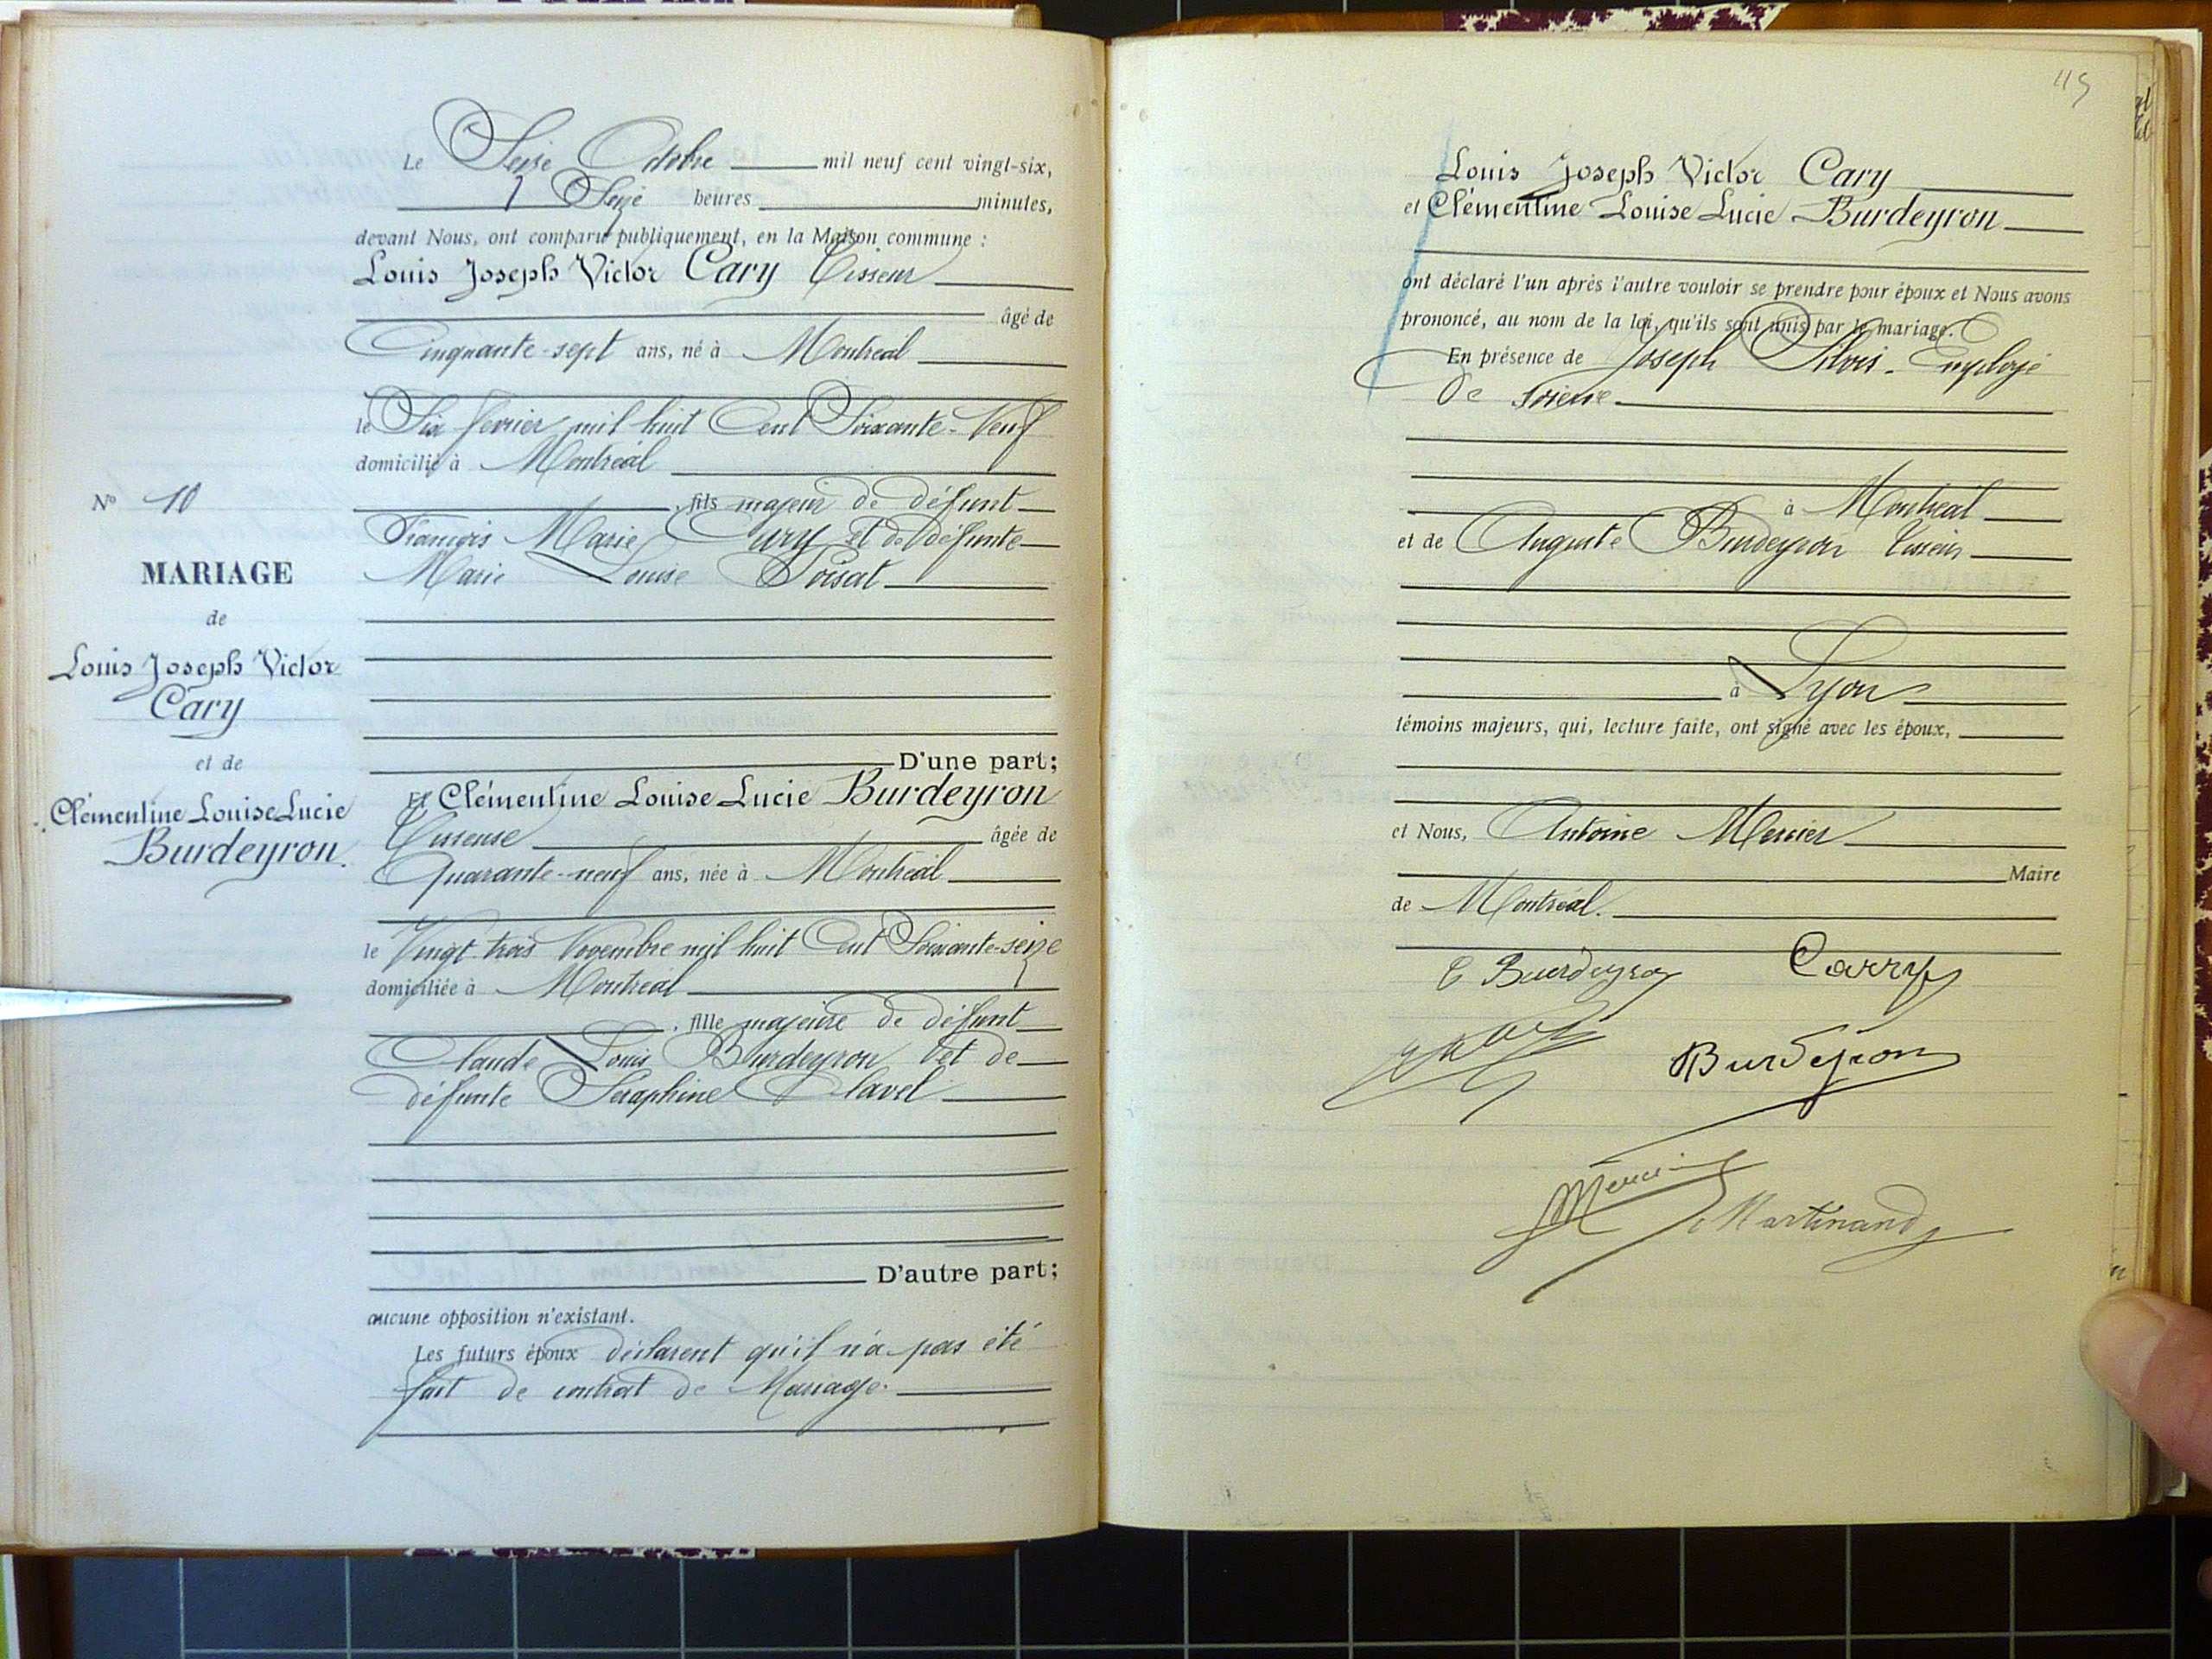 Le Seize Octobre mil neuf cent vingt-six,
Seize heures minutes,
devant Nous, ont comparu publiquement, en la Maison commune :
Louis Joseph Victor Cary Tisseur
âgé de
Cinquante-sept ans, né à Montréal
le Six février mil huit Cent Soixante-Neuf
domicilié à Montréal
, fils majeur de défunt
François Marie Cary et de défunte
Marie Louise Poisat
D'une part;
Et Clémentine Louise Lucie Burdeyron
Tisseuse âgée de
Quarante-neuf ans, née à Montréal
le Vingt trois Novembre mil huit Cent Soixante-seize
domiciliée à Montréal
, fille majeure de défunt
Claude Louis Burdeyron et de
défunte Séraphine Clavel
D'autre part;
aucune opposition n'existant.
Les futurs époux déclarent qu'il n'a pas été
fait de contrat de Mariage.
N° 10
MARIAGE
de
Louis Joseph Victor
Cary
et de
Clémentine Louise Lucie
Burdeyron.
45
Louis Joseph Victor Cary
et Clémentine Louise Lucie Burdeyron
ont déclaré l'un après l'autre vouloir se prendre pour époux et Nous avons
prononcé, au nom de la loi, qu'ils sont unis par le mariage.
En présence de Joseph Employé
de soierie
à Montréal
et de Auguste Burdeyron Tisseur
à Lyon
témoins majeurs, qui, lecture faite, ont signé avec les époux,
et Nous, Antoine Mercier
Maire
de Montréal.
C Burdeyron Carry
Burdeyron
Mercier
Martinand